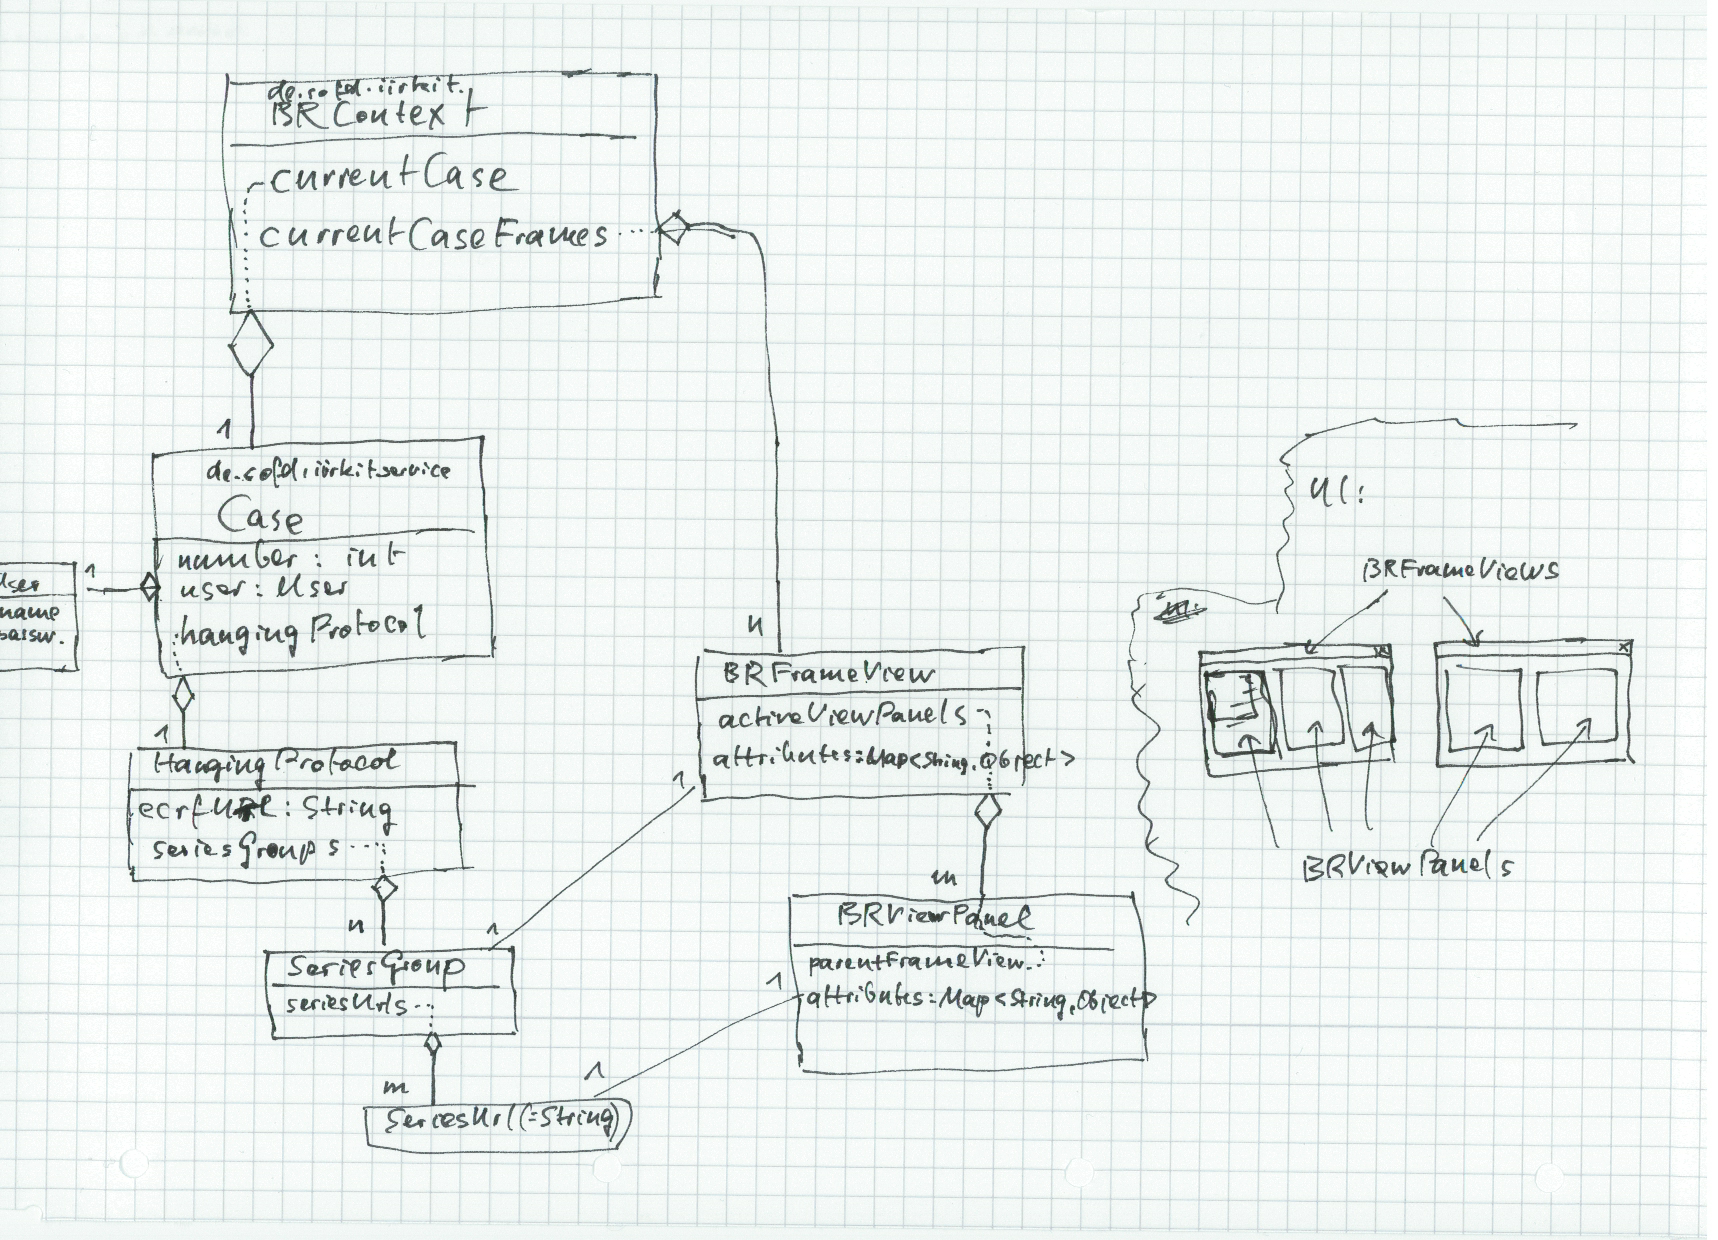 de.sofd.iirkit.
BRContext
currentCase
currentCaseFrames
1
de.sofd.iirkit.service
Case
number: int
user: User
hangingProtocol
1
User
name
passw.
1
HangingProtocol
ecrfURL: String
seriesGroups
n
SeriesGroup
seriesUrls
1
m
SeriesUrl(=String)
1
n
BRFrameView
activeViewPanels
attributes: Map<String, Object>
1
m
BRViewPanel
parentFrameView
attributes: Map<String, Object>
1
UI:
BRFrameViews
x
x
BRViewPanels